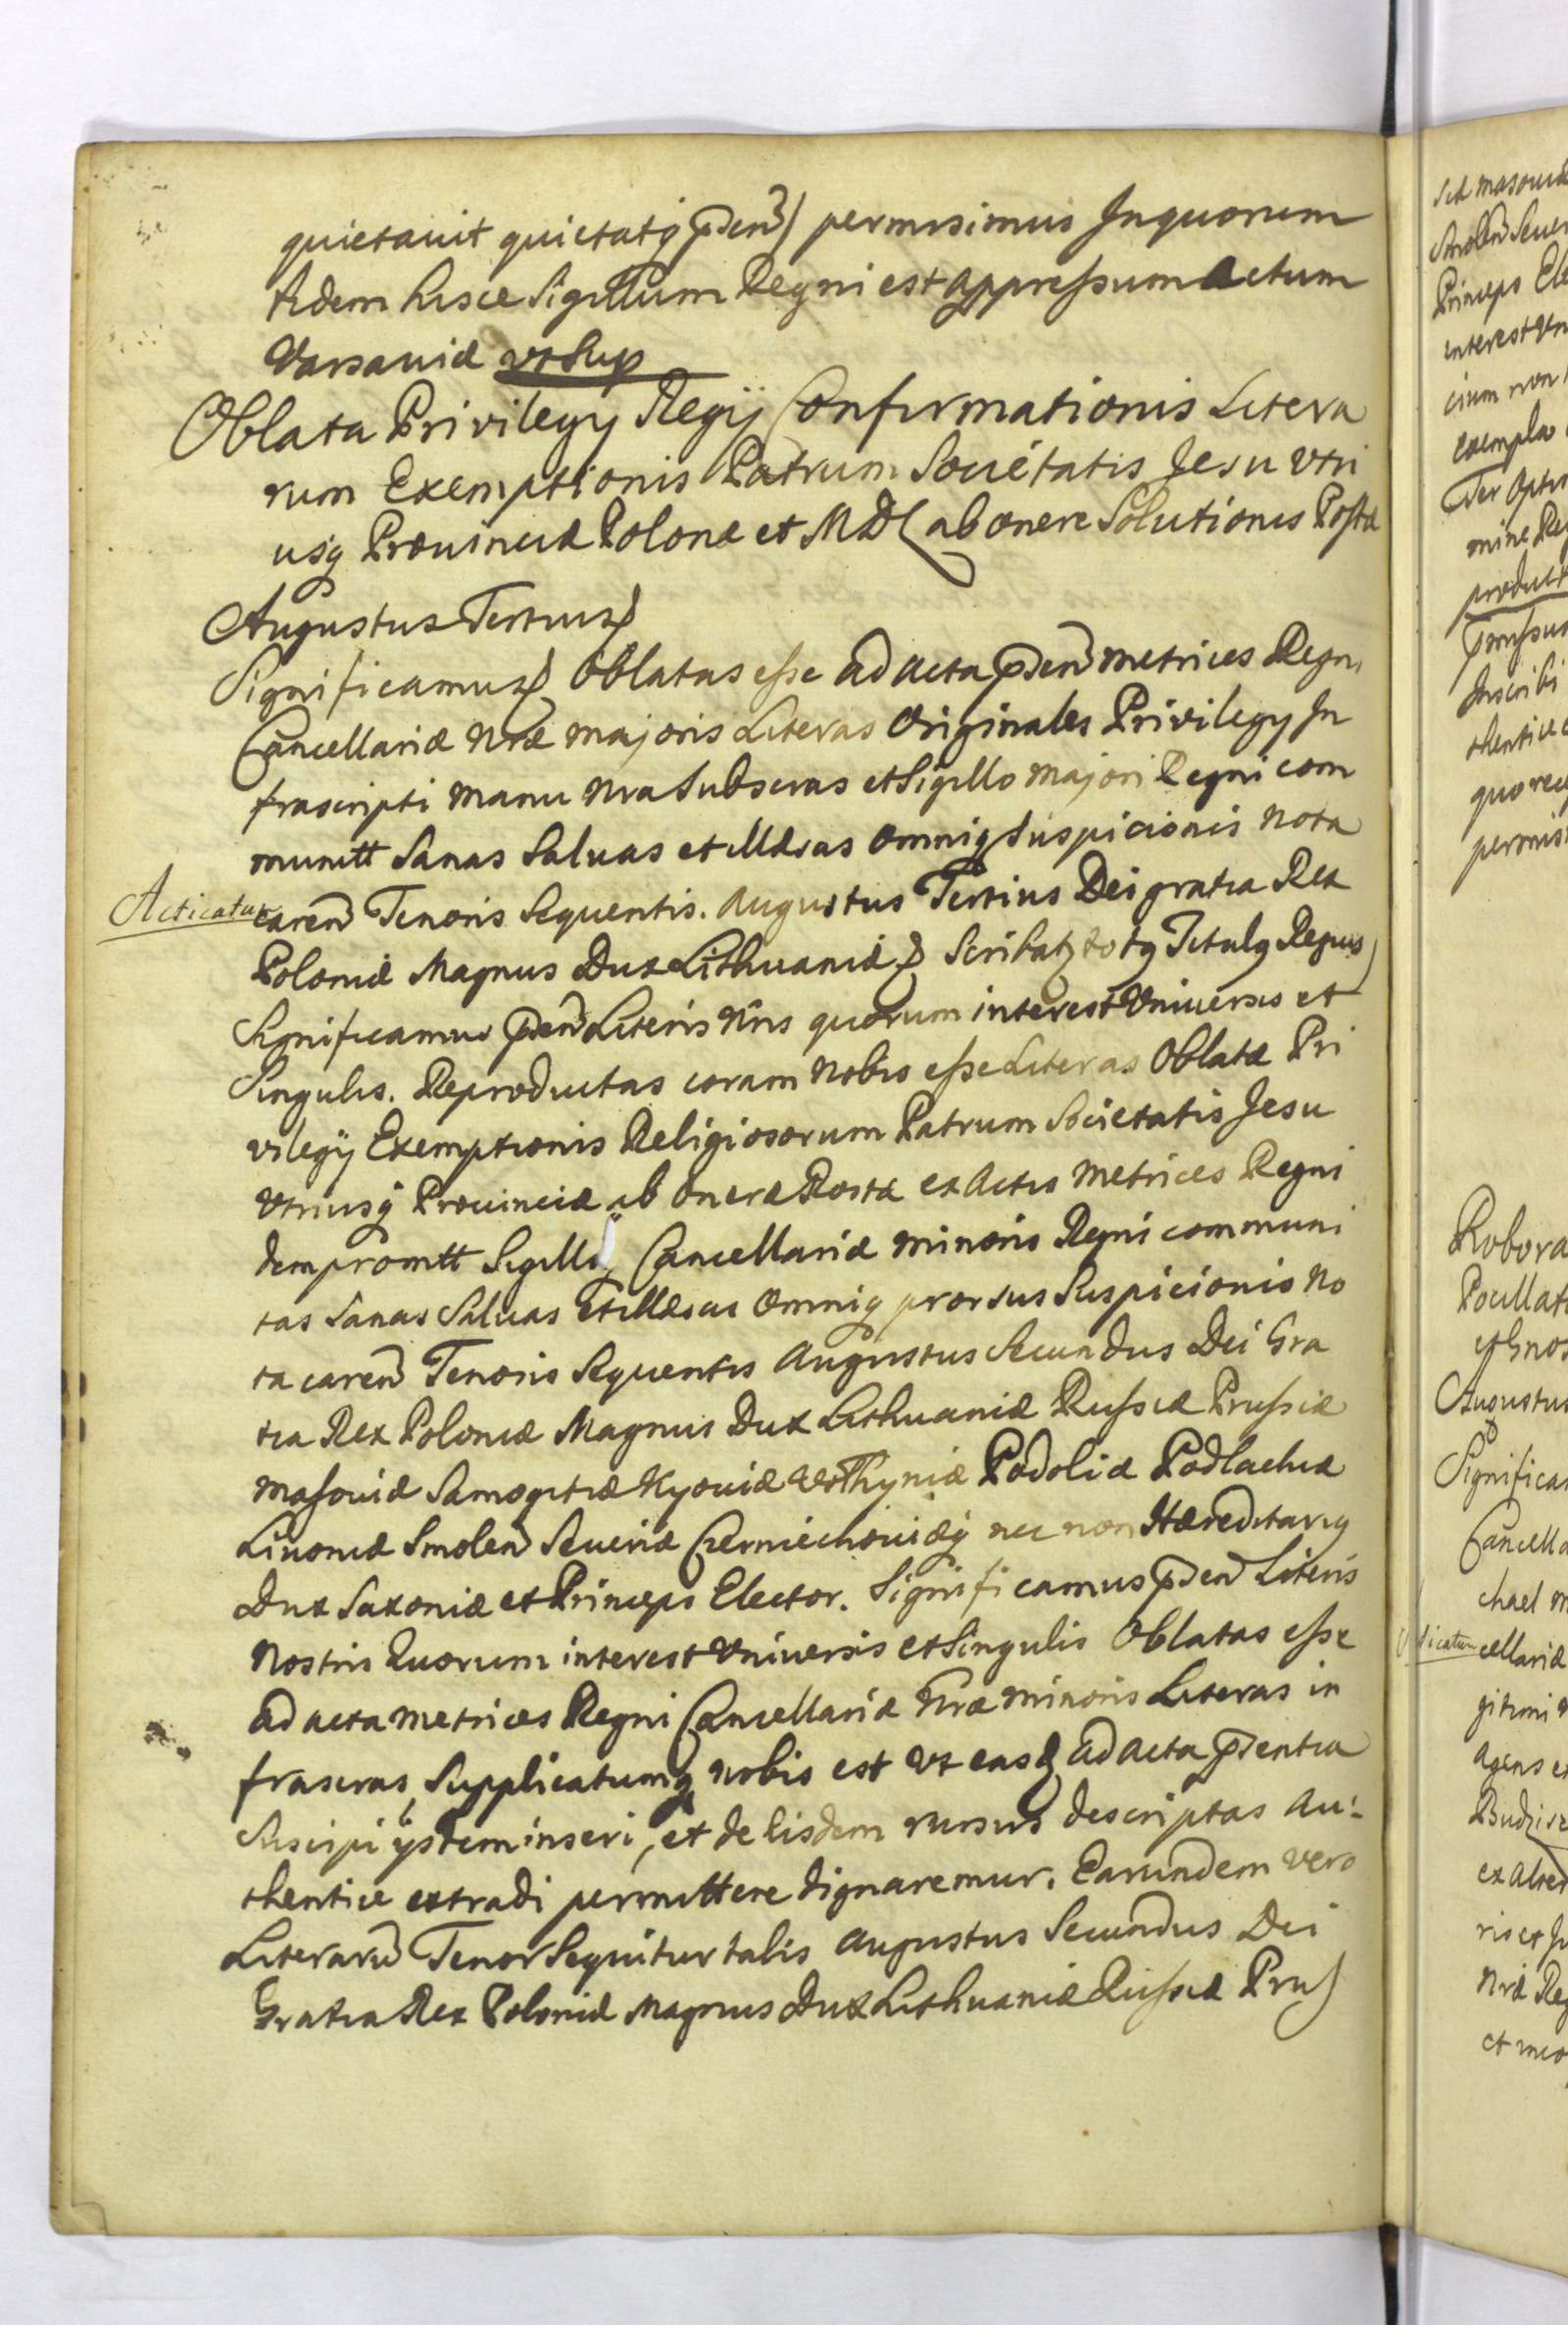 quietauit quietatq pñen) permisimus Inquorum
fidem hisce Sigillum Regni est appressum Actum
Varsaviæ vt Sup
Oblata Privilegy Regÿ Confirmationis Litera
rum Exemptionis Patrum Societatis Jesu vtri
usq Prouinciæ Polonæ et MDL ab onere Solutionis Postæ
Augustus Tertius
Significamus Oblatas esse ad acta pñen metrices Regni
Cancellariæ nræ majoris Literas Originales Privilegy In
frascripti manu nra Subscras et Sigillo majori Regni com
munitt Sanas Saluas et Illæsas omniq suspicionis nota
Acticatur
caren Tenoris Sequentis. Augustus Tertius Dei gratia Rex
Poloniæ Magnus Dux Lithuaniæ Scribatr totq Titulq Regius
Significamus pñen Literis nris quorum interest Vniuersis et
Singulis. Reproductas coram nobis esse Literas Oblatæ Pri
vilegÿ Exemptionis Religiosorum Patrum Societatis Jesu
Vtriusq Prouinciæ ab onere Postæ ex Actis metrices Regni
dempromtt Sigillo Cancellariæ minoris Regni communi
tas Sanas Saluas Et Illæsas omniq prorsus Suspicionis no
ta caren Tenoris Sequentis Augustus Secundus Dei Gra
tia Rex Poloniæ Magnus Dux Lithuaniæ Russiæ Prussiæ
Masouiæ Samogitiæ Kyouiæ Volhyniæ Podoliæ Podlachiæ
Liuoniæ Smolen Seueriæ Czerniechouiæq nec non Hæreditariq
Dux Saxoniæ et Princeps Elector. Significamus pñen Literis
Nostris Quorum interest Vniuersis et Singulis Oblatas esse
ad acta metrices Regni Cancellariæ nræ minoris Literas in
frascras, Supplicatumq nobis est vt eas ad acta pñentia
Suscipi ÿsdem inseri, et de Eisdem rursus descriptas au-
thentice extradi permittere dignaremur. Earundem vero
Literarū Tenor Sequitur talis Augustus Secundus Dei
Gratia Rex Poloniæ Magnus Dux Lithuaniæ Russiæ Prus
Princeps Ele
exempla
mine Reg
product
Inscribi
permis
Robora
Augustus
Significa
Cancella
chael m
cellariæ
nræ Reg